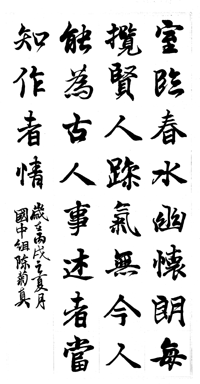 室臨春水幽懷朗每
攬賢人跡氣無今人
能為古人事述者當
知作者情
歲在丙戌之夏月
國中組陳菊真